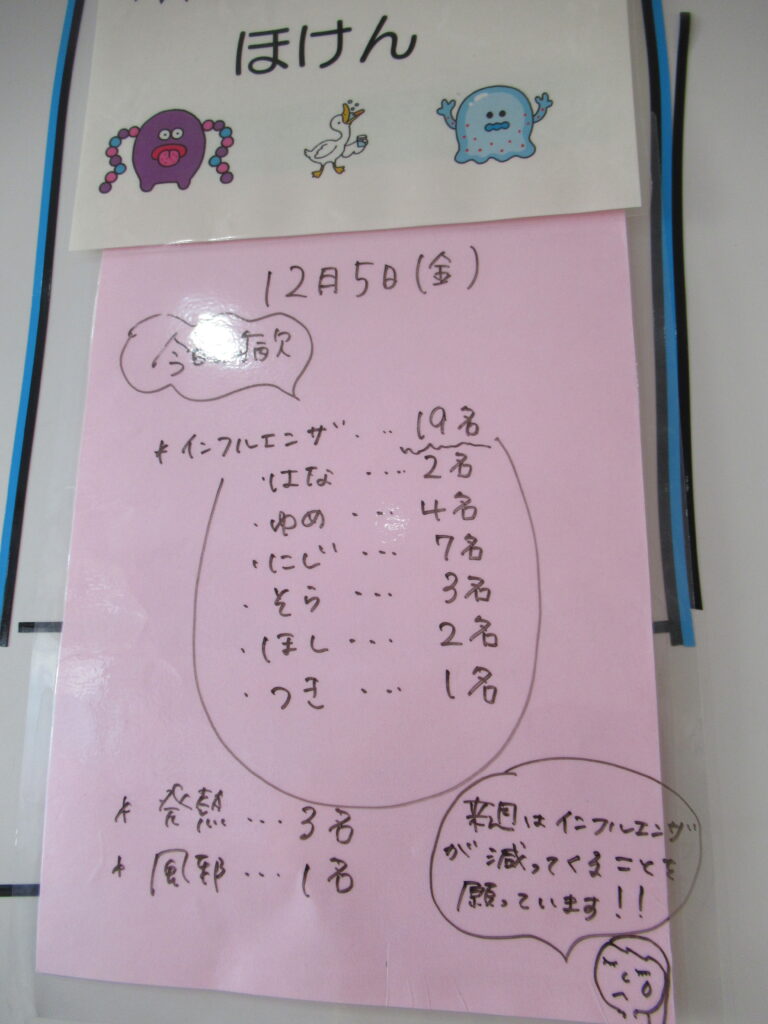 ほけん
12月5日(金)
今日の病欠
* インフルエンザ... 19名
・はな ... 2名
・ゆめ ... 4名
・にじ ... 7名
・そら ... 3名
・ほし ... 2名
・つき ... 1名
* 発熱 ... 3名
* 風邪 ... 1名
来週はインフルエンザ
が減ってくることを
願っています!!